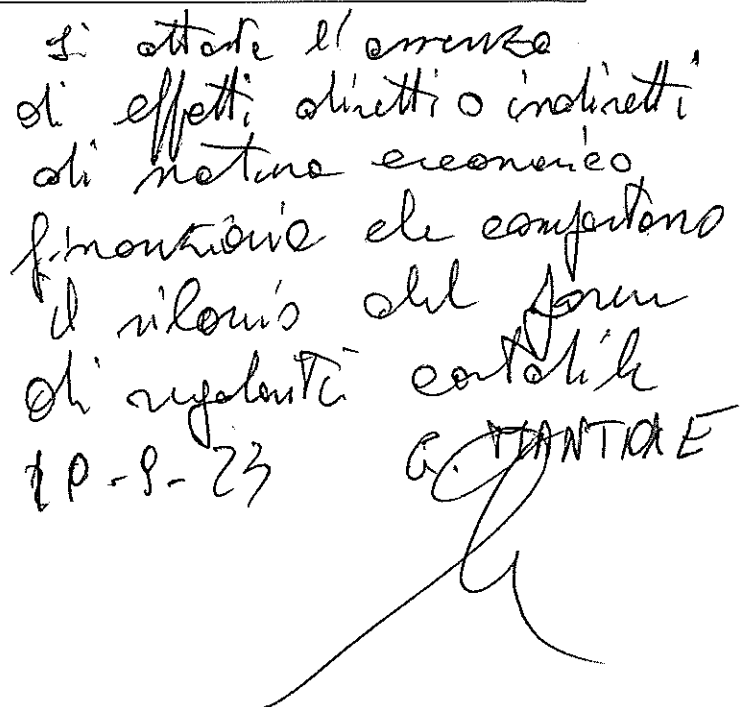 Si attesta l'assenza
di effetti diretti o indiretti
di natura economico
finanziaria che comportano
il rilascio del parere
di regolarità contabile
G.